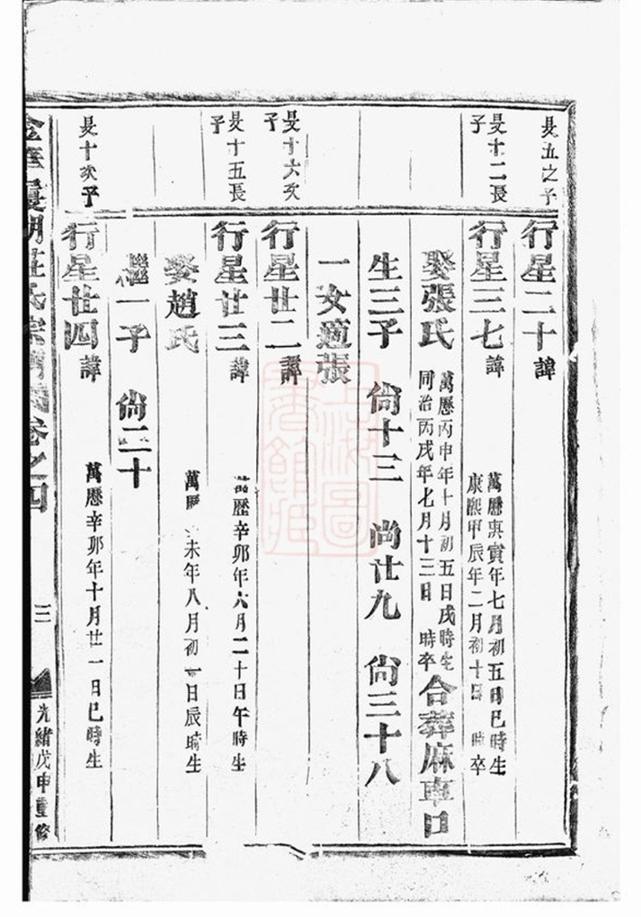 長五之子
行星二十諱
長十二長子
行星三七諱
萬曆庚寅年七月初五日巳時生
康熙甲辰年二月初十日 時卒
娶張氏
萬曆丙申年十月初五日戌時生
同治丙戌年七月十三日 時卒
合葬麻車口
生三子 尙十三 尙廿九 尙三十八
一女適張
長十六次子
行星廿二諱
萬歷辛卯年六月二十日午時生
長十五長子
行星廿三諱
娶趙氏
萬曆 未年八月初一日辰時生
繼一子 尙二十
長十次子
行星廿四諱
萬歷辛卯年十月廿一日巳時生
氏宗 卷之四
三
光緒戊申重修
上海圖書館藏